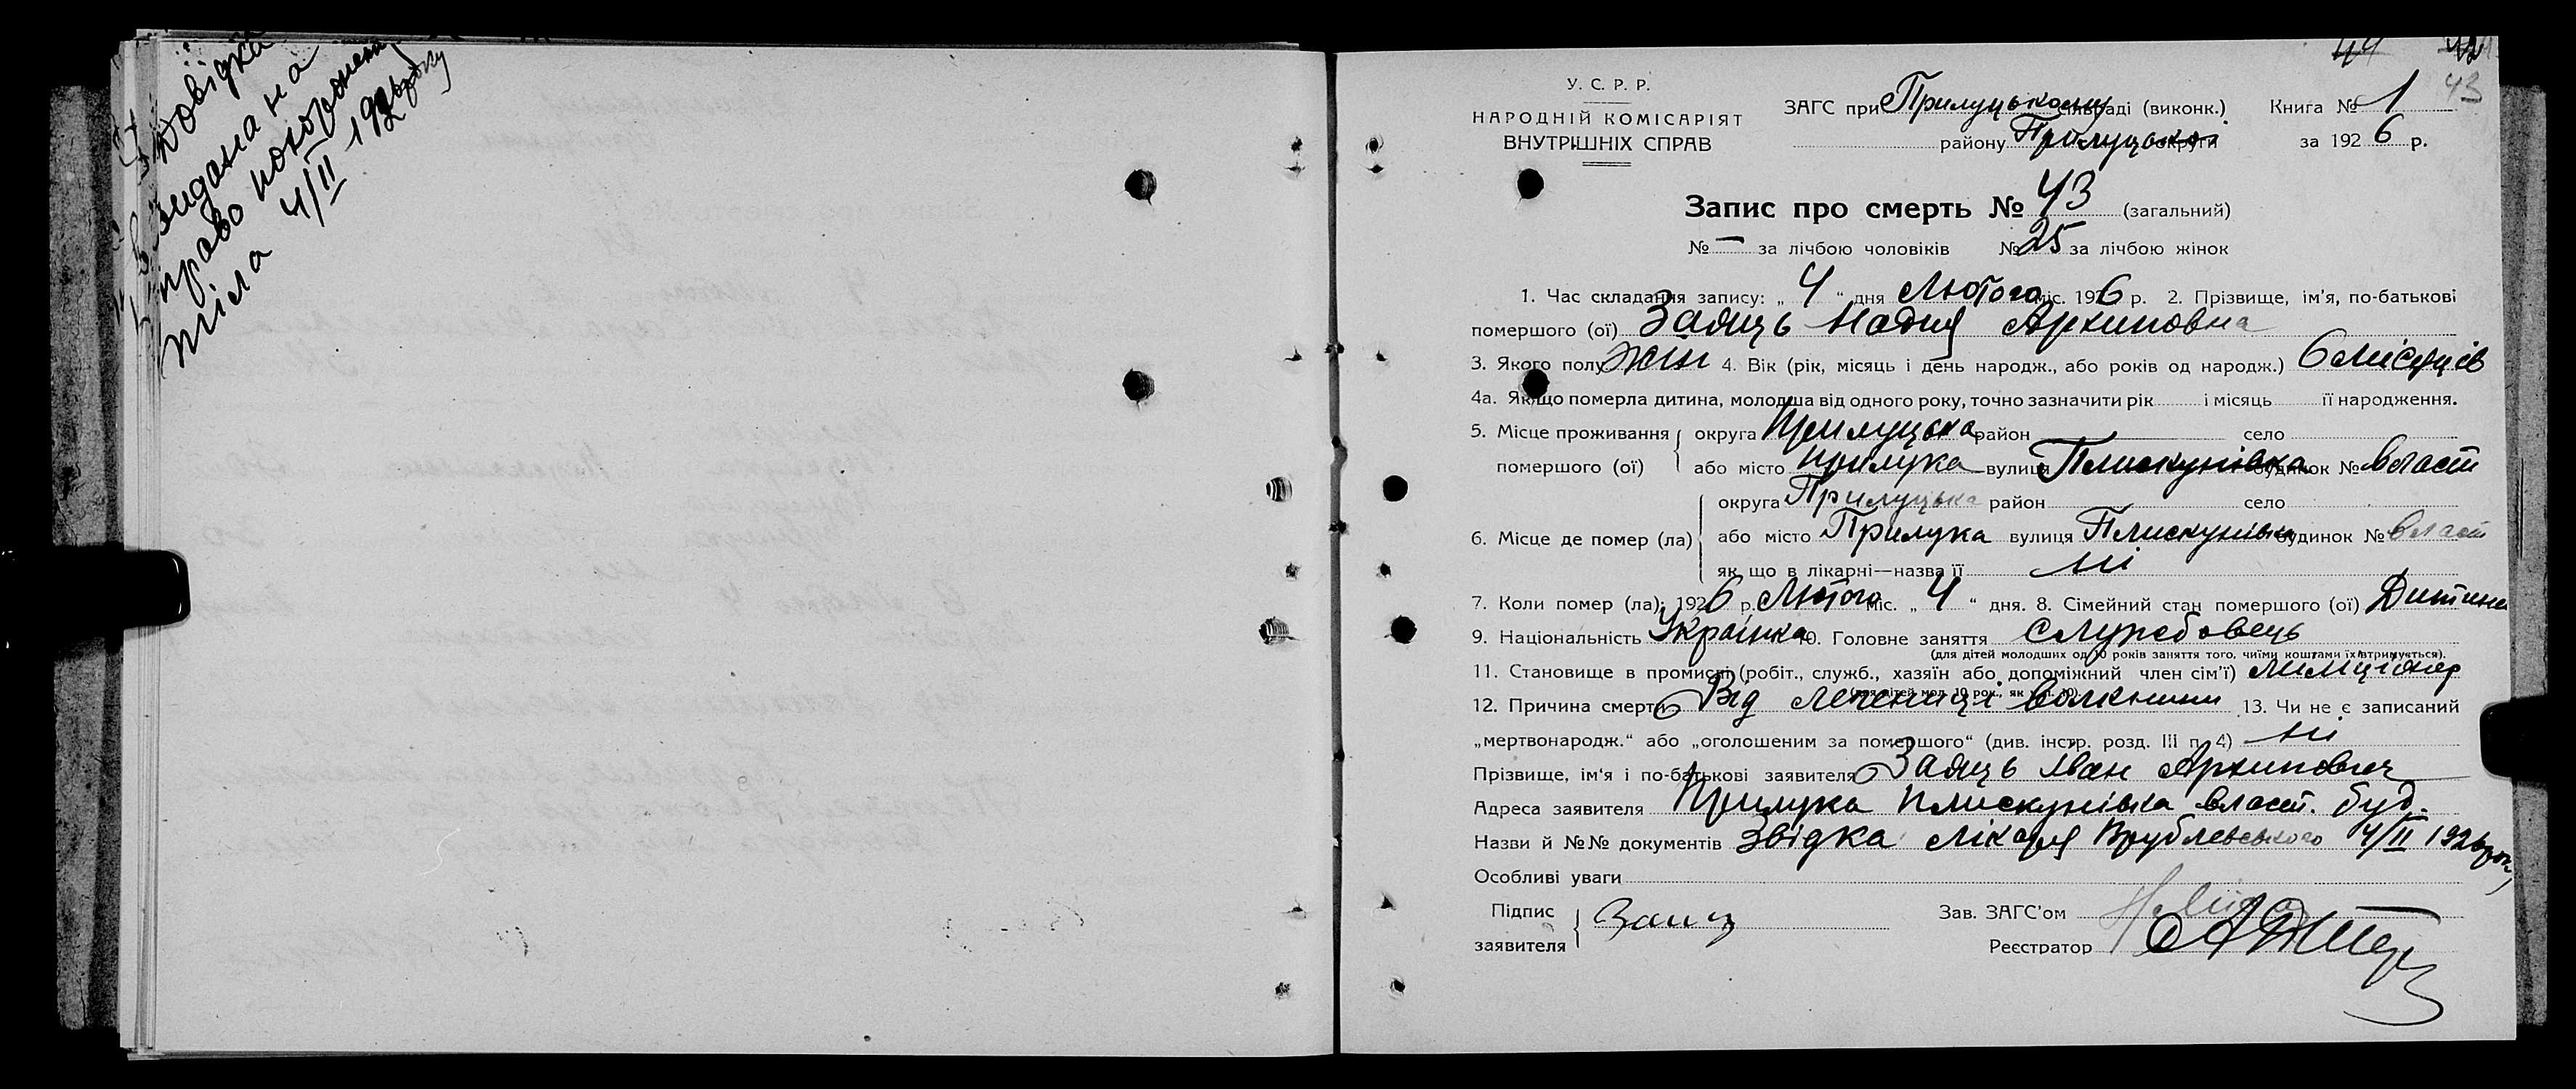 Довідка
видана на
право похорон
тіла 4/II 1926 року
44 42
43
У. С. Р. Р.
НАРОДНІЙ КОМІСАРІЯТ
ВНУТРІШНІХ СПРАВ
ЗАГС при Прилуцькому сільраді (виконк.) Книга № 1
району Прилуцької округи за 1926 р.
Запис про смерть № 43 (загальний)
№ — за лічбою чоловіків № 25 за лічбою жінок
1. Час складання запису: „ 4 “ дня Лютого міс. 1926 р. 2. Прізвище, ім'я, по-батькові
помершого (ої) Заяць Надия Архиповна
3. Якого полу жін 4. Вік (рік, місяць і день народж., або років од народж.) 6 місяців
4а. Якщо померла дитина, молодша від одного року, точно зазначити рік і місяць її народження.
5. Місце проживання помершого (ої) округа Прилуцька район — село
або місто Прилука вулиця Плискунівка будинок № власт
6. Місце де помер (ла) округа Прилуцька район село
або місто Прилука вулиця Плискунівка будинок № власт
як що в лікарні—назва її ні
7. Коли помер (ла): 1926 р. Лютого міс. „ 4 “ дня. 8. Сімейний стан помершого (ої) Дитина
9. Національність Українка 10. Головне заняття службовець
(для дітей молодших од 10 років заняття того, чиїми коштами їх втримується).
11. Становище в промислі (робіт., служб., хазяїн або допоміжний член сім'ї) миліціонер
(для дітей мол. 10 рок., як у п. 10).
12. Причина смерти Від легениці 13. Чи не є записаний
„мертвонародж.“ або „оголошеним за помершого“ (див. інстр. розд. III п. 4) ні
Прізвище, ім'я і по-батькові заявителя Заяць Іван Архипович
Адреса заявителя Прилука Плискунівка власт. буд.
Назви й №№ документів Звідка лікаря Врублевського 4/II 1926 року
Особливі уваги
Підпис заявителя Заяц
Зав. ЗАГС'ом
Реєстратор